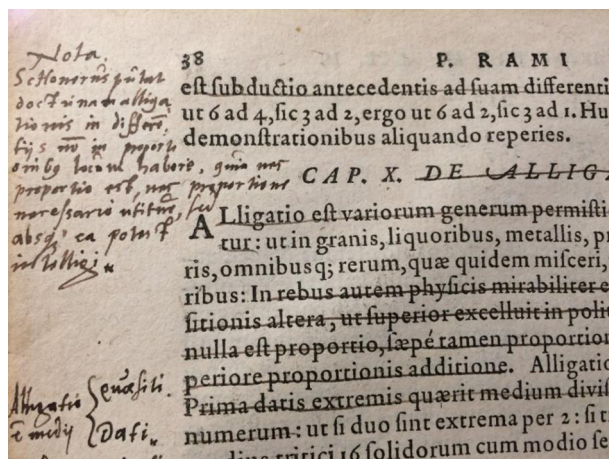 Nota.
Schonerus putat
doctrinam alliga
tionis in differē
tijs nō in proporti
onibus locum habere, quia nec
proportio est, nec proportione
necessario utitur, sed
absque ea potest
intelligi
38
P. RAMI
est subductio antecedentis ad suam differenti
ut 6 ad 4, sic 3 ad 2, ergo ut 6 ad 2, sic 3 ad 1. Hu
demonstrationibus aliquando reperies.
CAP. X. DE ALLIGA
ALligatio est variorum generum permisti
tur: ut in granis, liquoribus, metallis, pr
ris, omnibusq; rerum, quæ quidem misceri,
ribus: In rebus autem physicis mirabiliter e
sitionis altera, ut superior excelluit in polit
nulla est proportio, sæpé tamen proportion
periore proportionis additione. Alligatio
Prima datis extremis quærit medium divil
numerum: ut si duo sint extrema per 2: si t
tritici 16 solidorum cum modio se
Alligatio
ē medij
quæsiti.
Dati